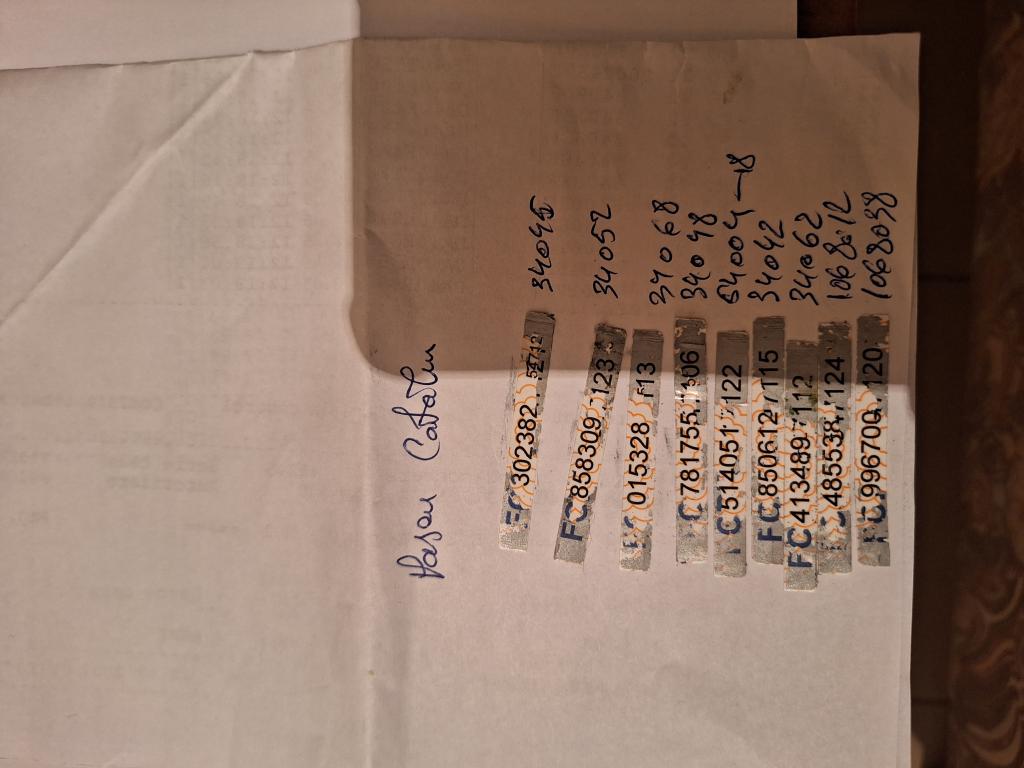 Hasan Catalin
FC 302382 52712 34045
FC 858309 123 34052
015328 F13 34068
C 781755 306 34048
C 514051 122 64004-18
FC 850612 T15 34042
FC 413489 112 34062
C 485538 124 1068012
FC 996709 120 1068038